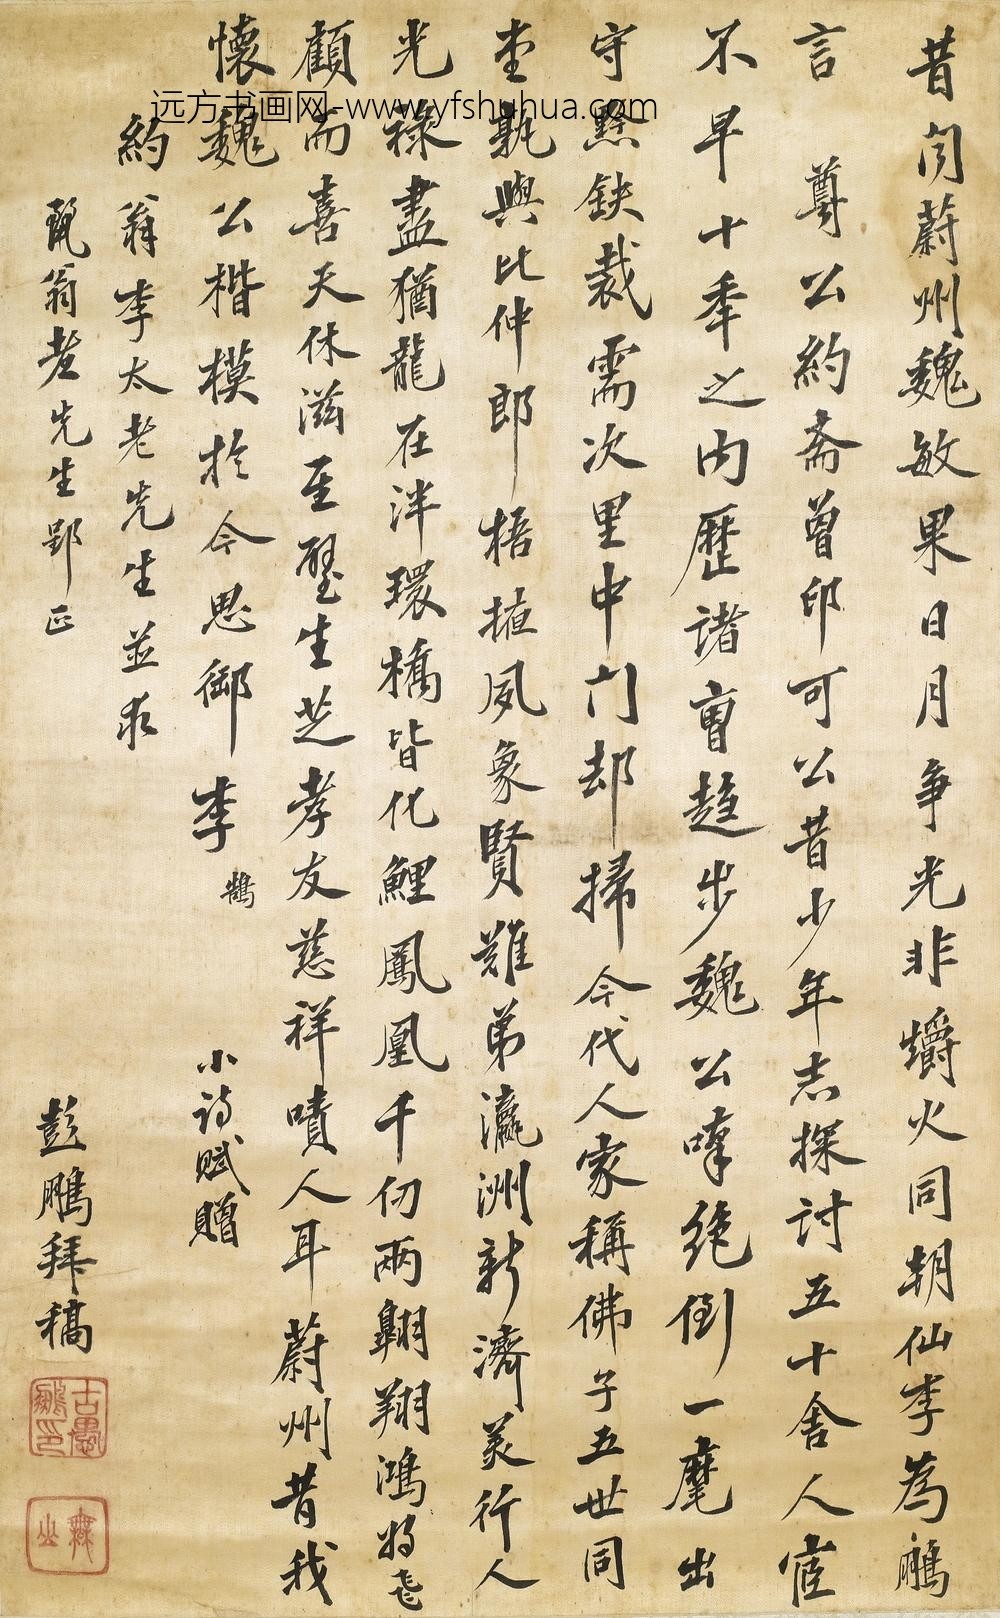 远方书画网-www.yfshuhua.com
昔闻蔚州魏敏果日月争光非爝火同朝仙李為鵬
言尊公約斋曽印可公昔少年志探讨五十舍人宦
不早十年之内歷諸曹趋步魏公嘆绝倒一麾出
守黔鈌裁需次里中门却掃今代人家稱佛子五世同
堂孰與比仲郎梧掖夙象賢難弟瀛洲新濟美行人
光禄盡猶龍在泮環橋皆化鯉鳳凰千仞兩翺翔鴻将老
顧而喜天休滋至瑿生芝孝友慈祥嘖人耳蔚州昔我
懷魏公楷模於今思御李鵷小诗赋贈
約翁李太老先生並求
甄翁老先生郢正
彭鵬拜稿
古愚
鵬印
無山